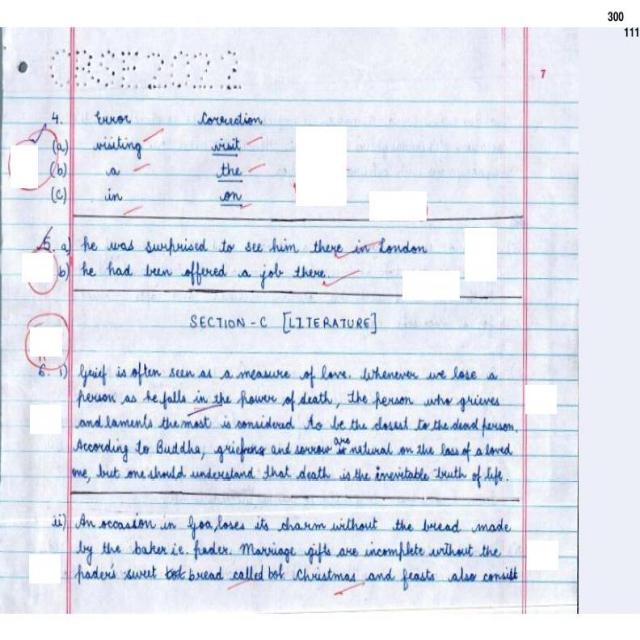 300
111
CBSE2022
7
4. Error Correction
(a) visiting visit
(b) a the
(c) in on
5. a) he was surprised to see him there in London
b) he had been offered a job there.
SECTION - C [LITERATURE]
6. i) Grief is often seen as a measure of love. Whenever we lose a
person as he falls in the power of death, the person who grieves
and laments the most is considered to be the closest to the dead person.
According to Buddha, griefing and sorrow are natural on the loss of a loved
me, but one should understand that death is the inevitable truth of life.
ii) An occasion in Goa, loses its charm without the bread made
by the baker i.e. pader. Marriage gifts are incomplete without the
pader's sweet bread called bol Christmas and feasts also consist